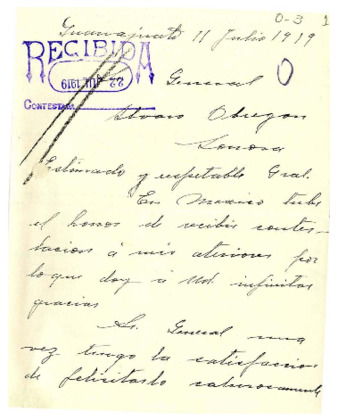 O-3 1
Guanajuato 11 Julio 1919
RECIBIDA
22 JUL 1919
CONTESTADA
General
Alvaro Obregon
Sonora
Estimado y respetable Gral.
En Mexico tube
el honor de recibir contes-
tacion á mis ateriores por
lo que doy á Ud. infinitas
gracias
Sr. General una
vez tengo la satisfaccion
de felicitarlo calurosamente